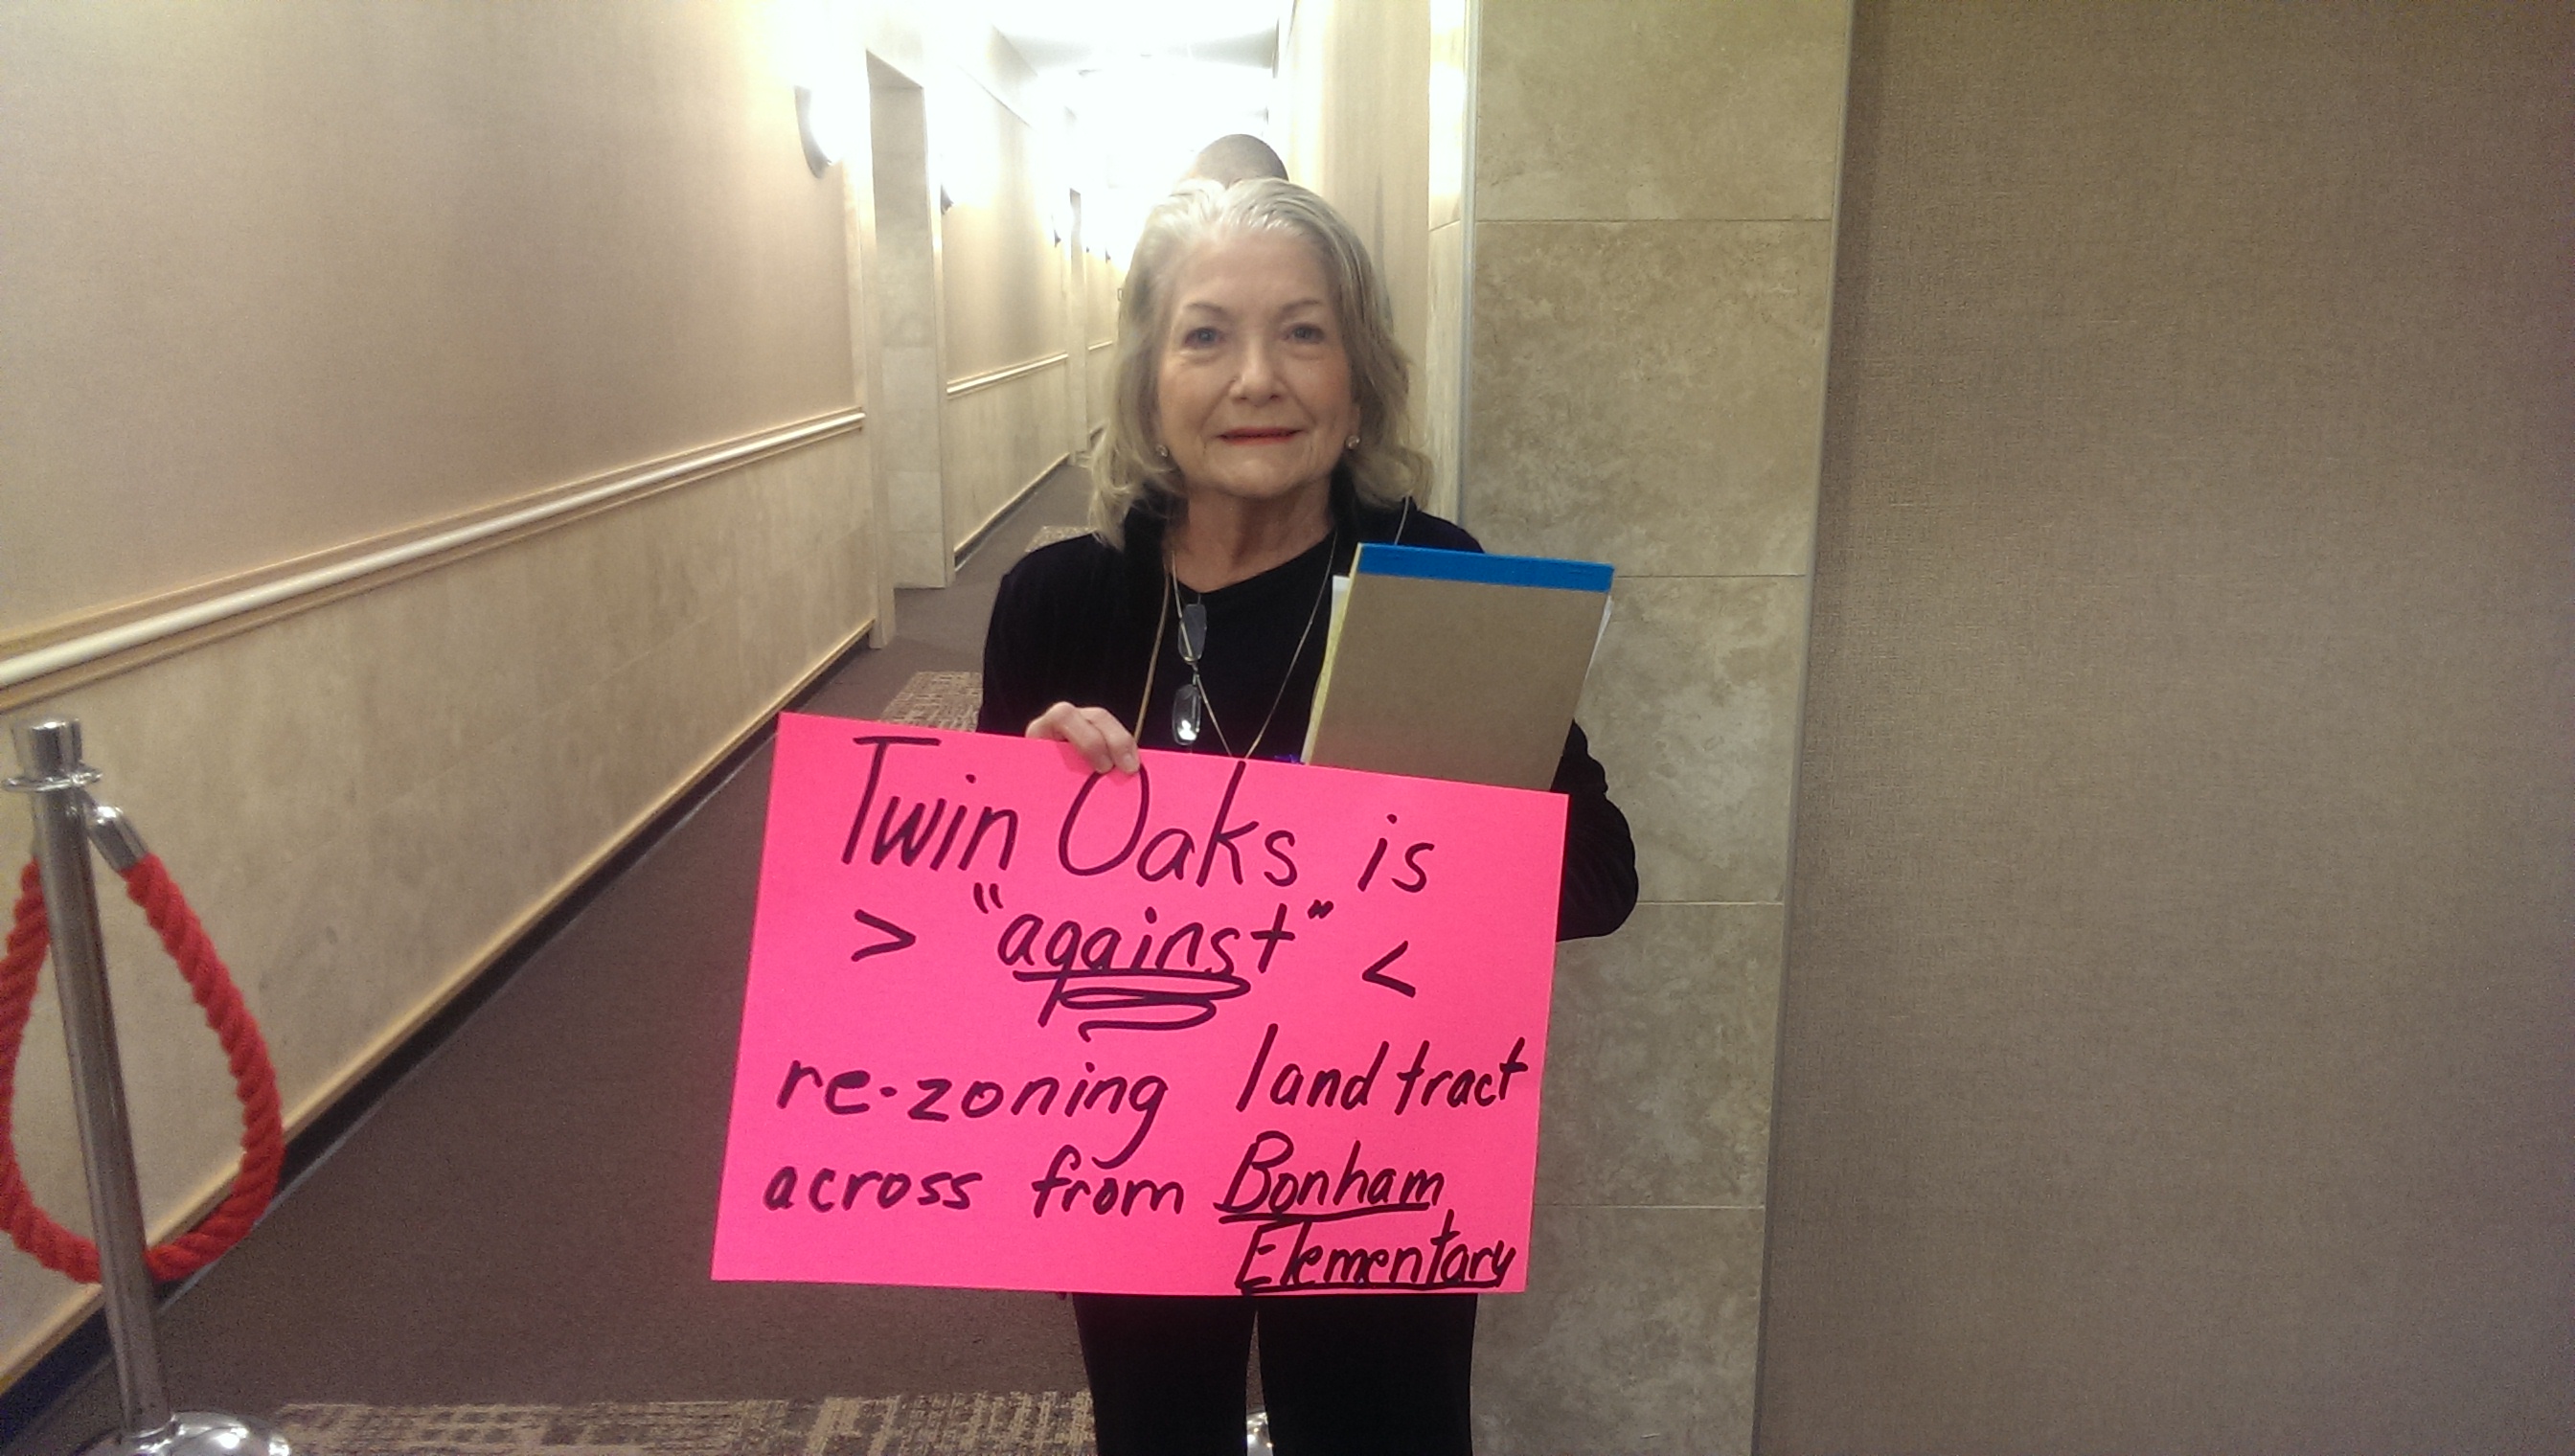 Twin Oaks is
> "against" <
re-zoning land tract
across from Bonham
Elementary